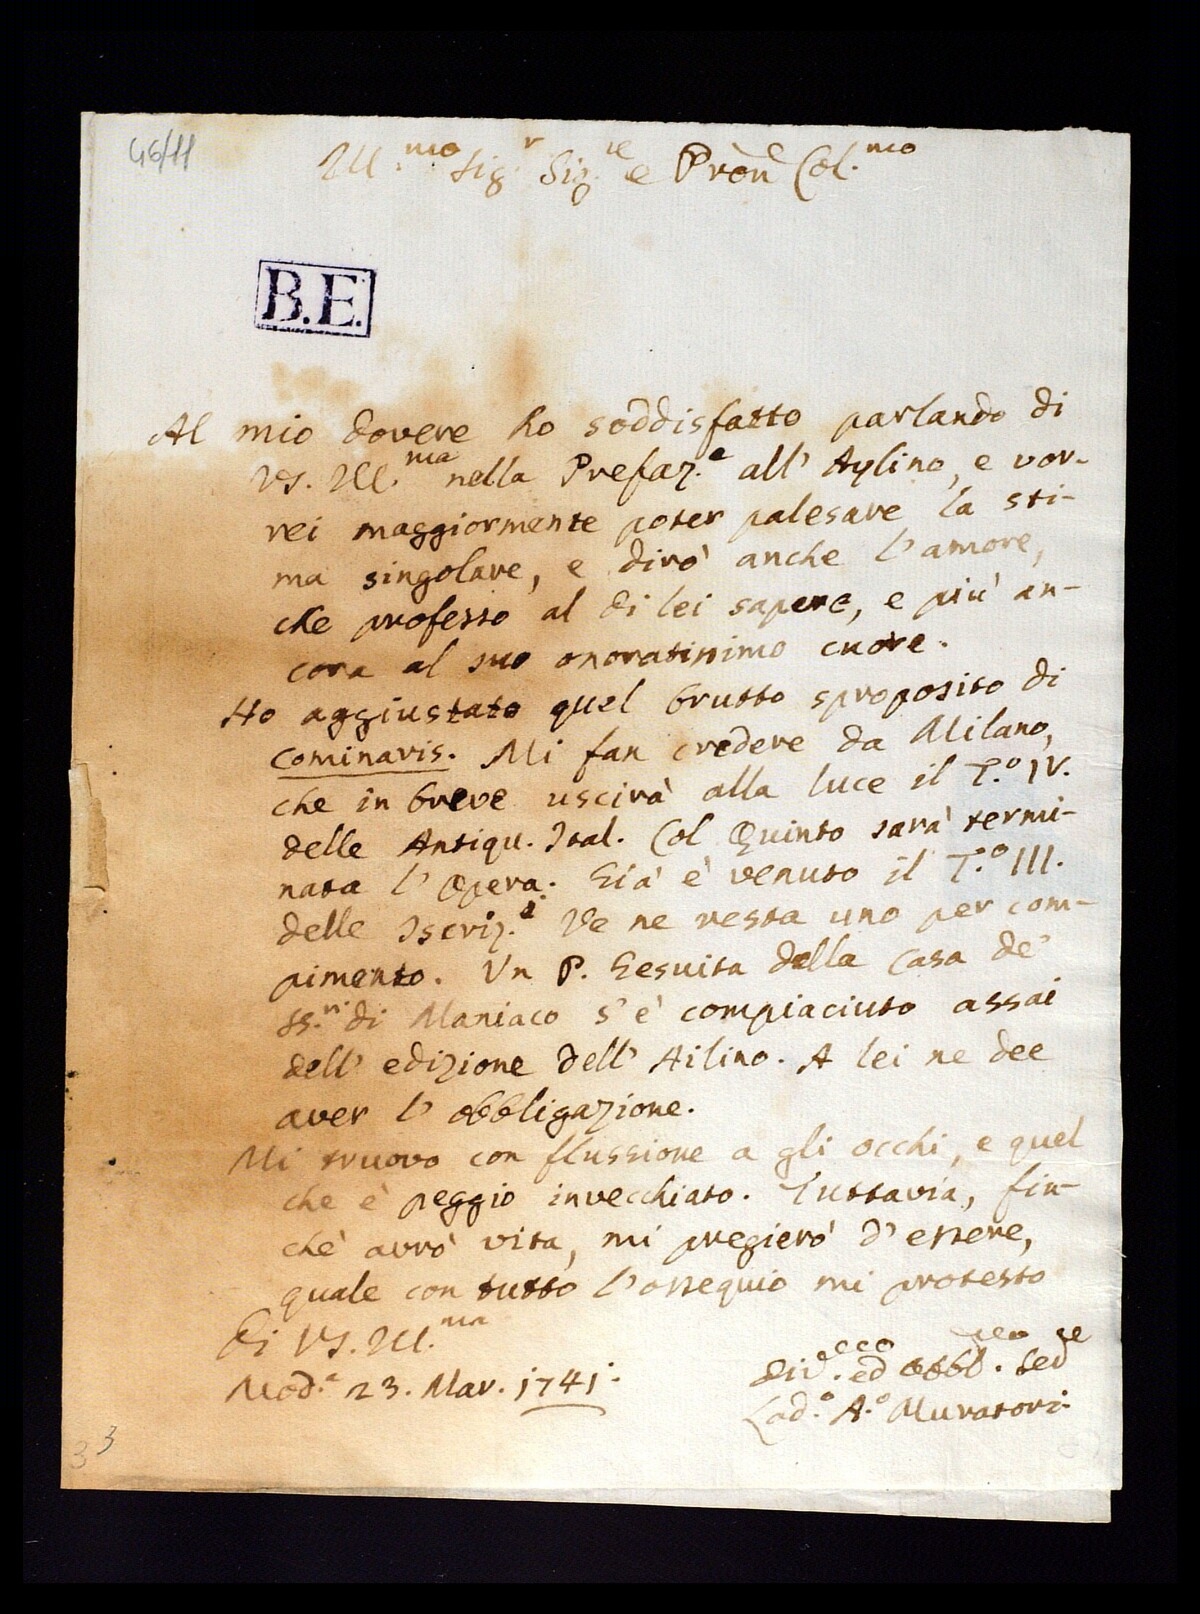 46/11
Ill.mo Sig.r Sig.re e Pron Col.mo
B.E.
Al mio dovere ho soddisfatto parlando di
VS. Ill.ma nella Prefaz.e all' Aylino, e vor-
rei maggiormente poter palesare la sti-
ma singolare, e dirò anche l'amore,
che professo al di lei sapere, e più an-
cora al suo onoratissimo cuore.
Ho aggiustato quel brutto sproposito di
Cominavis. Mi fan credere da Milano,
che in breve uscirà alla luce il T.o IV.
delle Antiqu. Ital. Col Quinto sarà termi-
nata l'Opera. Già è venuto il T.o III.
delle Iscriz.i Ve ne resta uno per com-
pimento. Un P. Gesuita della Casa de'
SS.ri di Maniaco s'è compiaciuto assai
dell' edizione dell' Ailino. A lei ne dee
aver l' obbligazione.
Mi truovo con flussione a gli occhi, e quel
che è peggio invecchiato. Tuttavia, fin-
chè avrò vita, mi pregierò d'essere,
quale con tutto l'ossequio mi protesto
Di VS. Ill.ma
Mod.a 23. Mar. 1741.
Ser.e
Lod.o A.o Muratori.
33